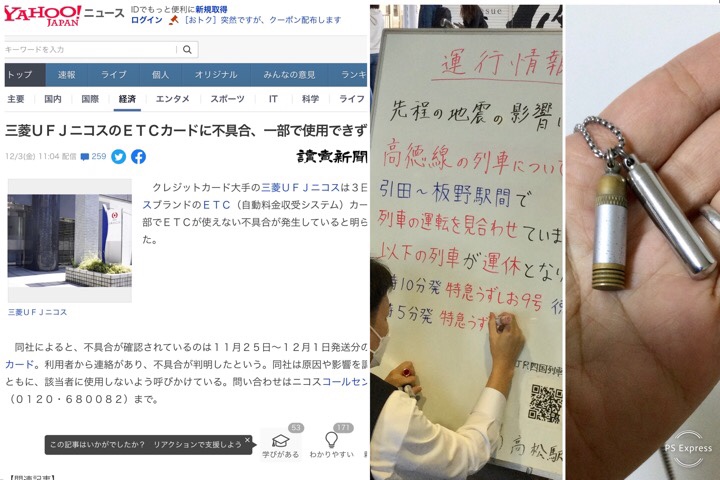 YAHOO!
JAPAN
ニュース
IDでもっと便利に新規取得
ログイン
【おトク】突然ですが、クーポン配布します
キーワードを入力
トップ 速報 ライブ 個人 オリジナル みんなの意見 ランキ
主要 国内 国際 経済 エンタメ スポーツ IT 科学 ライフ
三菱ＵＦＪニコスのＥＴＣカードに不具合、一部で使用できず
12/3(金) 11:04 配信 259
讀賣新聞
クレジットカード大手の三菱ＵＦＪニコスは３日
スブランドのＥＴＣ（自動料金収受システム）カー
部でＥＴＣが使えない不具合が発生していると明ら
た。
三菱ＵＦＪニコス
同社によると、不具合が確認されているのは１１月２５日～１２月１日発送分の
カード。利用者から連絡があり、不具合が判明したという。同社は原因や影響を
ともに、該当者に使用しないよう呼びかけている。問い合わせはニコスコールセン
（０１２０・６８００８２）まで。
この記事はいかがでしたか？ リアクションで支援しよう
53
学びがある
171
わかりやすい
【関連記事】
運行情報
先程の地震の影響
高徳線の列車について
引田～板野駅間で
列車の運転を見合わせていま
以下の列車が運休とな
時10分発 特急うずしお9号
時5分発 特急うず
JR四国列車
高松駅
PS Express